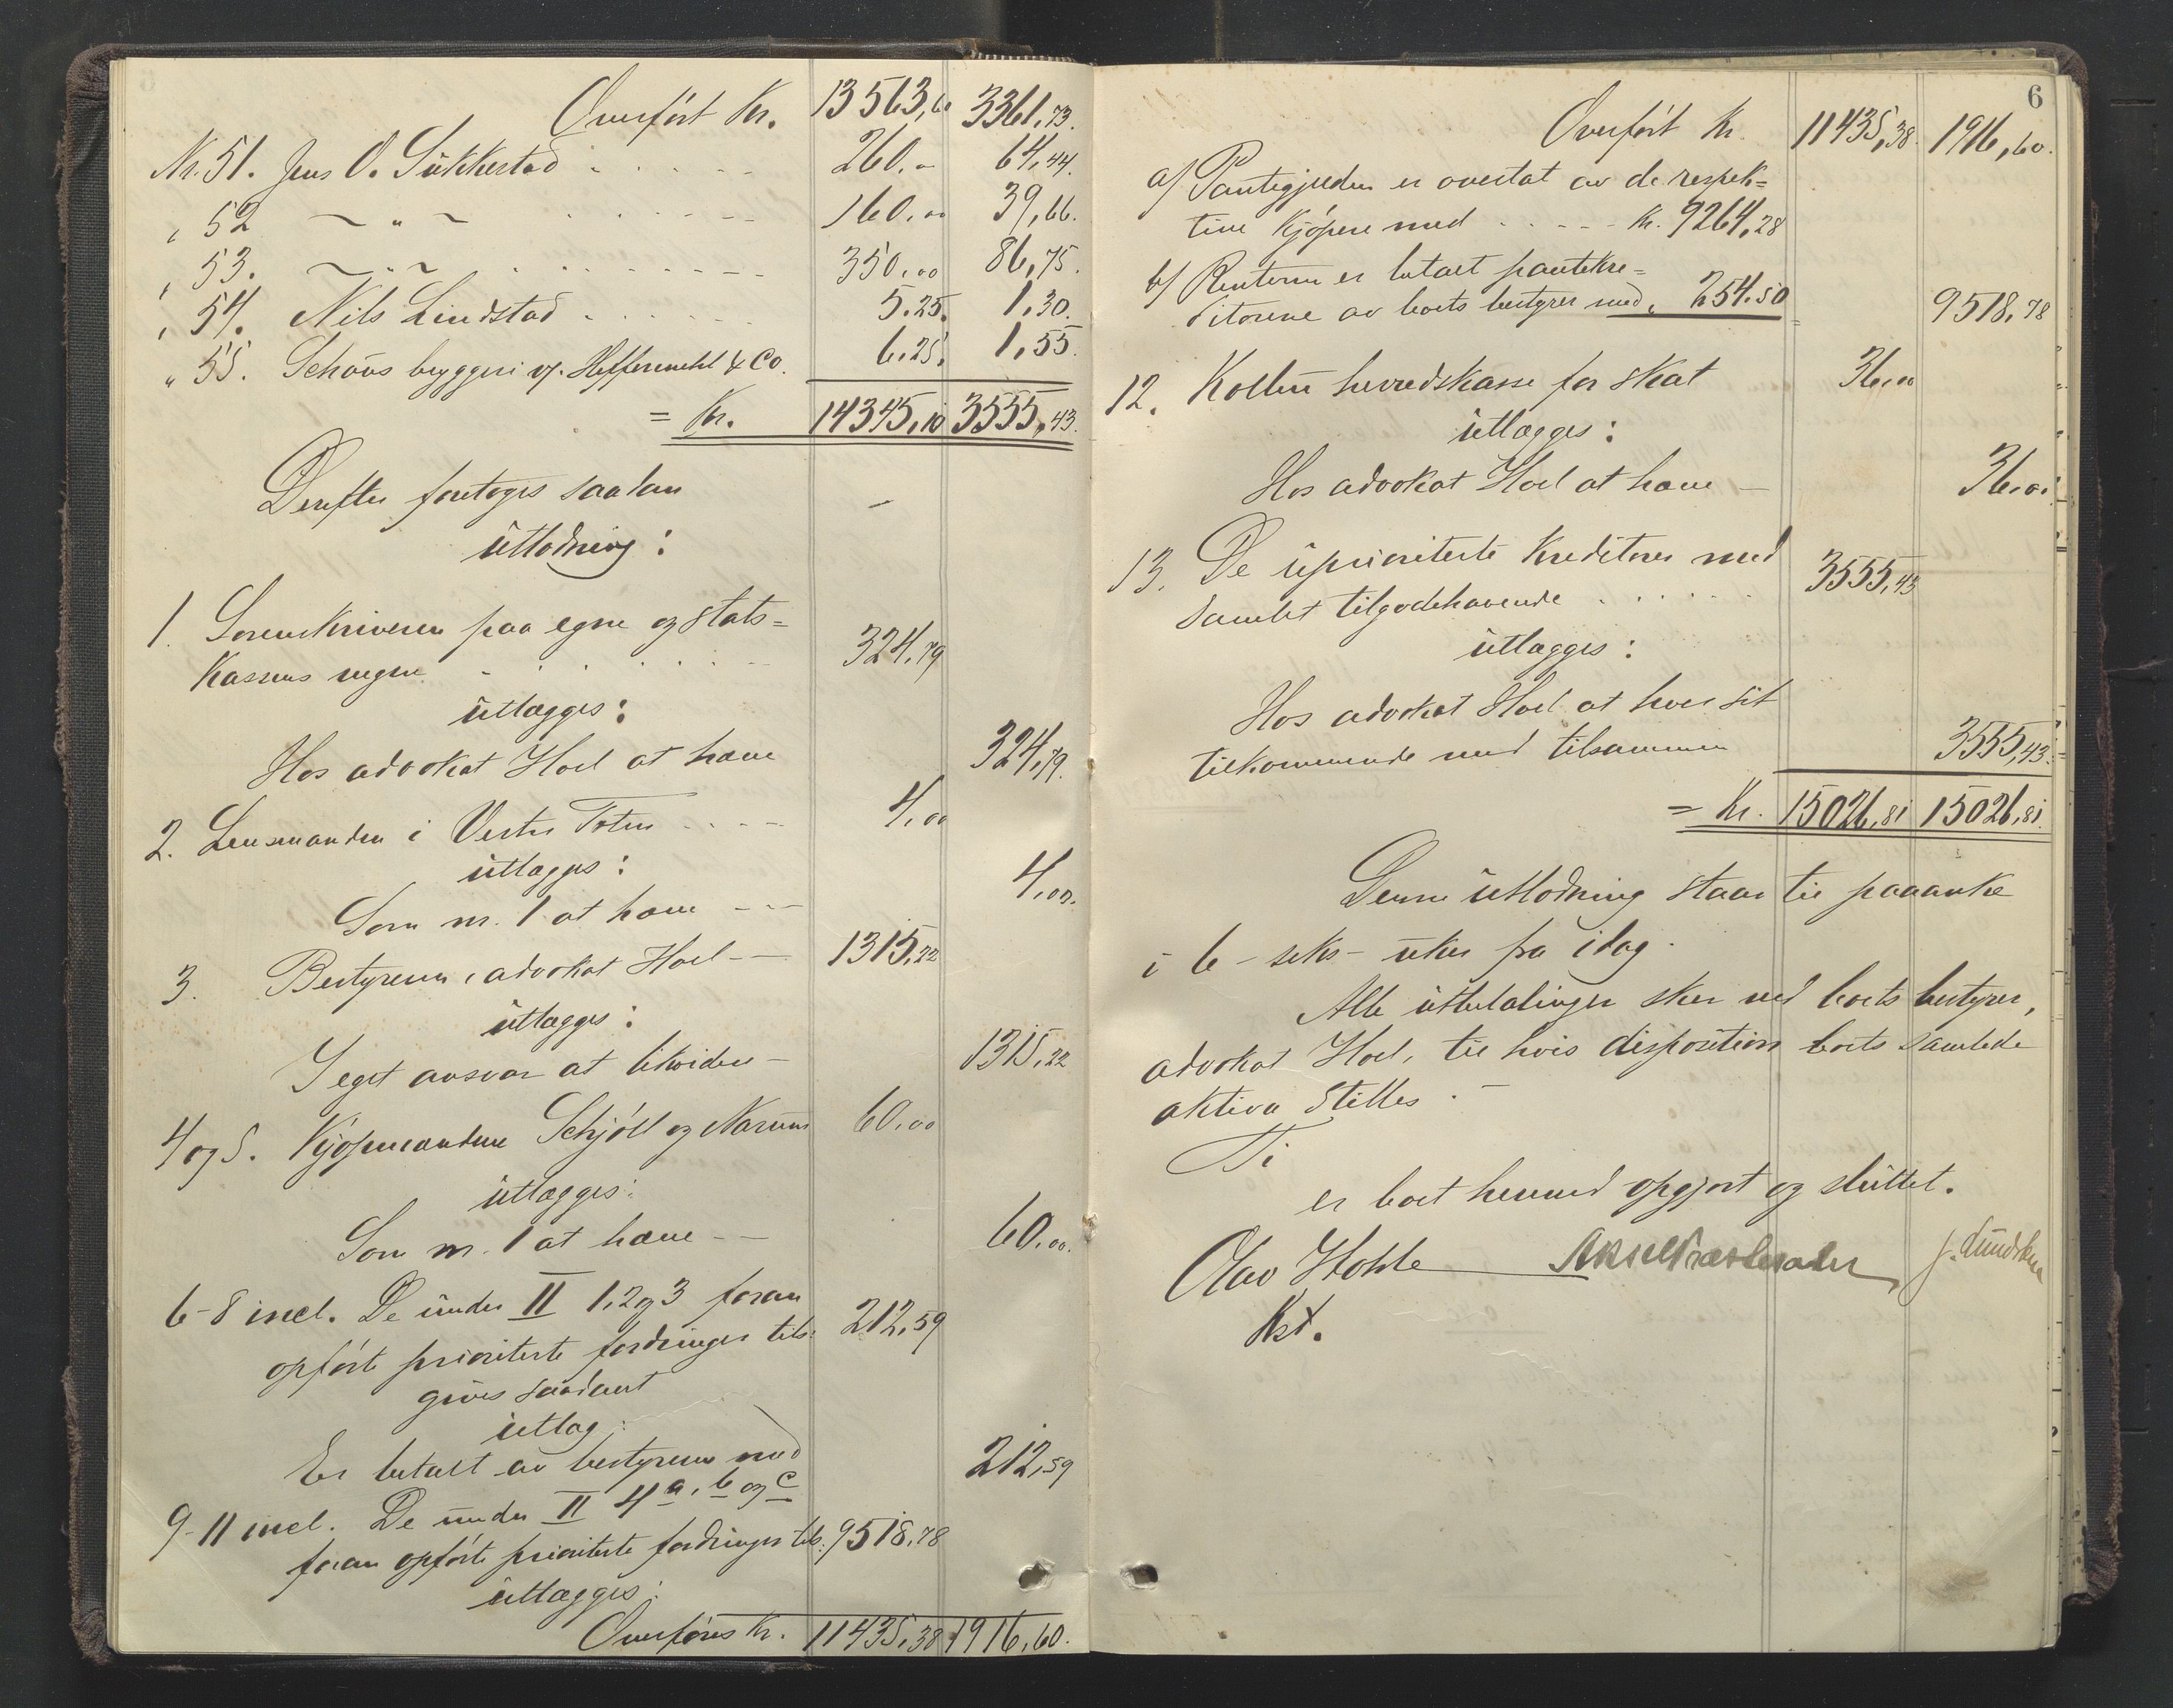 Overført Kr. 13563,60 3361,73.
Nr. 51. Jens O. Sukkestad 260.- 64,44.
" 52 — " — 160.00 39,66.
" 53. — " — 350.00 86,75.
" 54. Nils Lindstad 5.25. 1,30.
" 55. Schous byggeri v/. Heffermehl & Co. 6,25. 1,55.
= Kr. 14345,10 3555,43.
Derefter foretoges saadan
utlodning:
1. Sorenskriveren paa egne og stats=
kassens vegne 324,79
utlægges:
Hos advokat Hoel at hæve 324,79.
2. Lensmanden i Vestre Toten 4,00
utlægges:
Som nr. 1 at hæve 4,00.
3. Bestyreren, advokat Hoel 1315,22
utlægges:
I eget ansvar at likvidere 1315,22
4 og 5. Kjøpmændene Schjöll og Narum 60,00
utlægges:
Som nr. 1 at hæve 60,00.
6-8 incl. De under II 1, 2 og 3 foran
opførte prioriterte fordringer tils. 212,59
gives saadant
utlag:
Er betalt av bestyreren med 212,59
9-11 incl. De under II 4 a, b og c
foran opførte prioriterte fordringer tils. 9518,78
utlægges:
Overføres Kr. 11435,38 1916,60.
6
Overført Kr. 11435,38. 1916,60.
a/ Pantegjælden er overtat av de respek=
tive kjøpere med Kr. 9264,28
b/ Renterne er betalt pantekre=
ditorene av boets bestyrer med " 254.50 9518,78
12. Kolbu herredskasse for skat 36,00
utlægges:
Hos advokat Hoel at hæve 36.00
13. De uprioriterte kreditorer med
samlet tilgodehavende 3555,43
utlægges:
Hos advokat Hoel at hæve sit
tilkommende med tilsammen 3555,43.
= Kr. 15026,81 15026,81.
Denne utlodning staar til paaanke
i 6 - seks - uker fra idag.
Alle utbetalinger sker ved boets bestyrer,
advokat Hoel, til hvis disposition boets samlede
aktiva stilles.
Ti
er boet hermed opgjort og sluttet.
Olav Hohle
Kst.